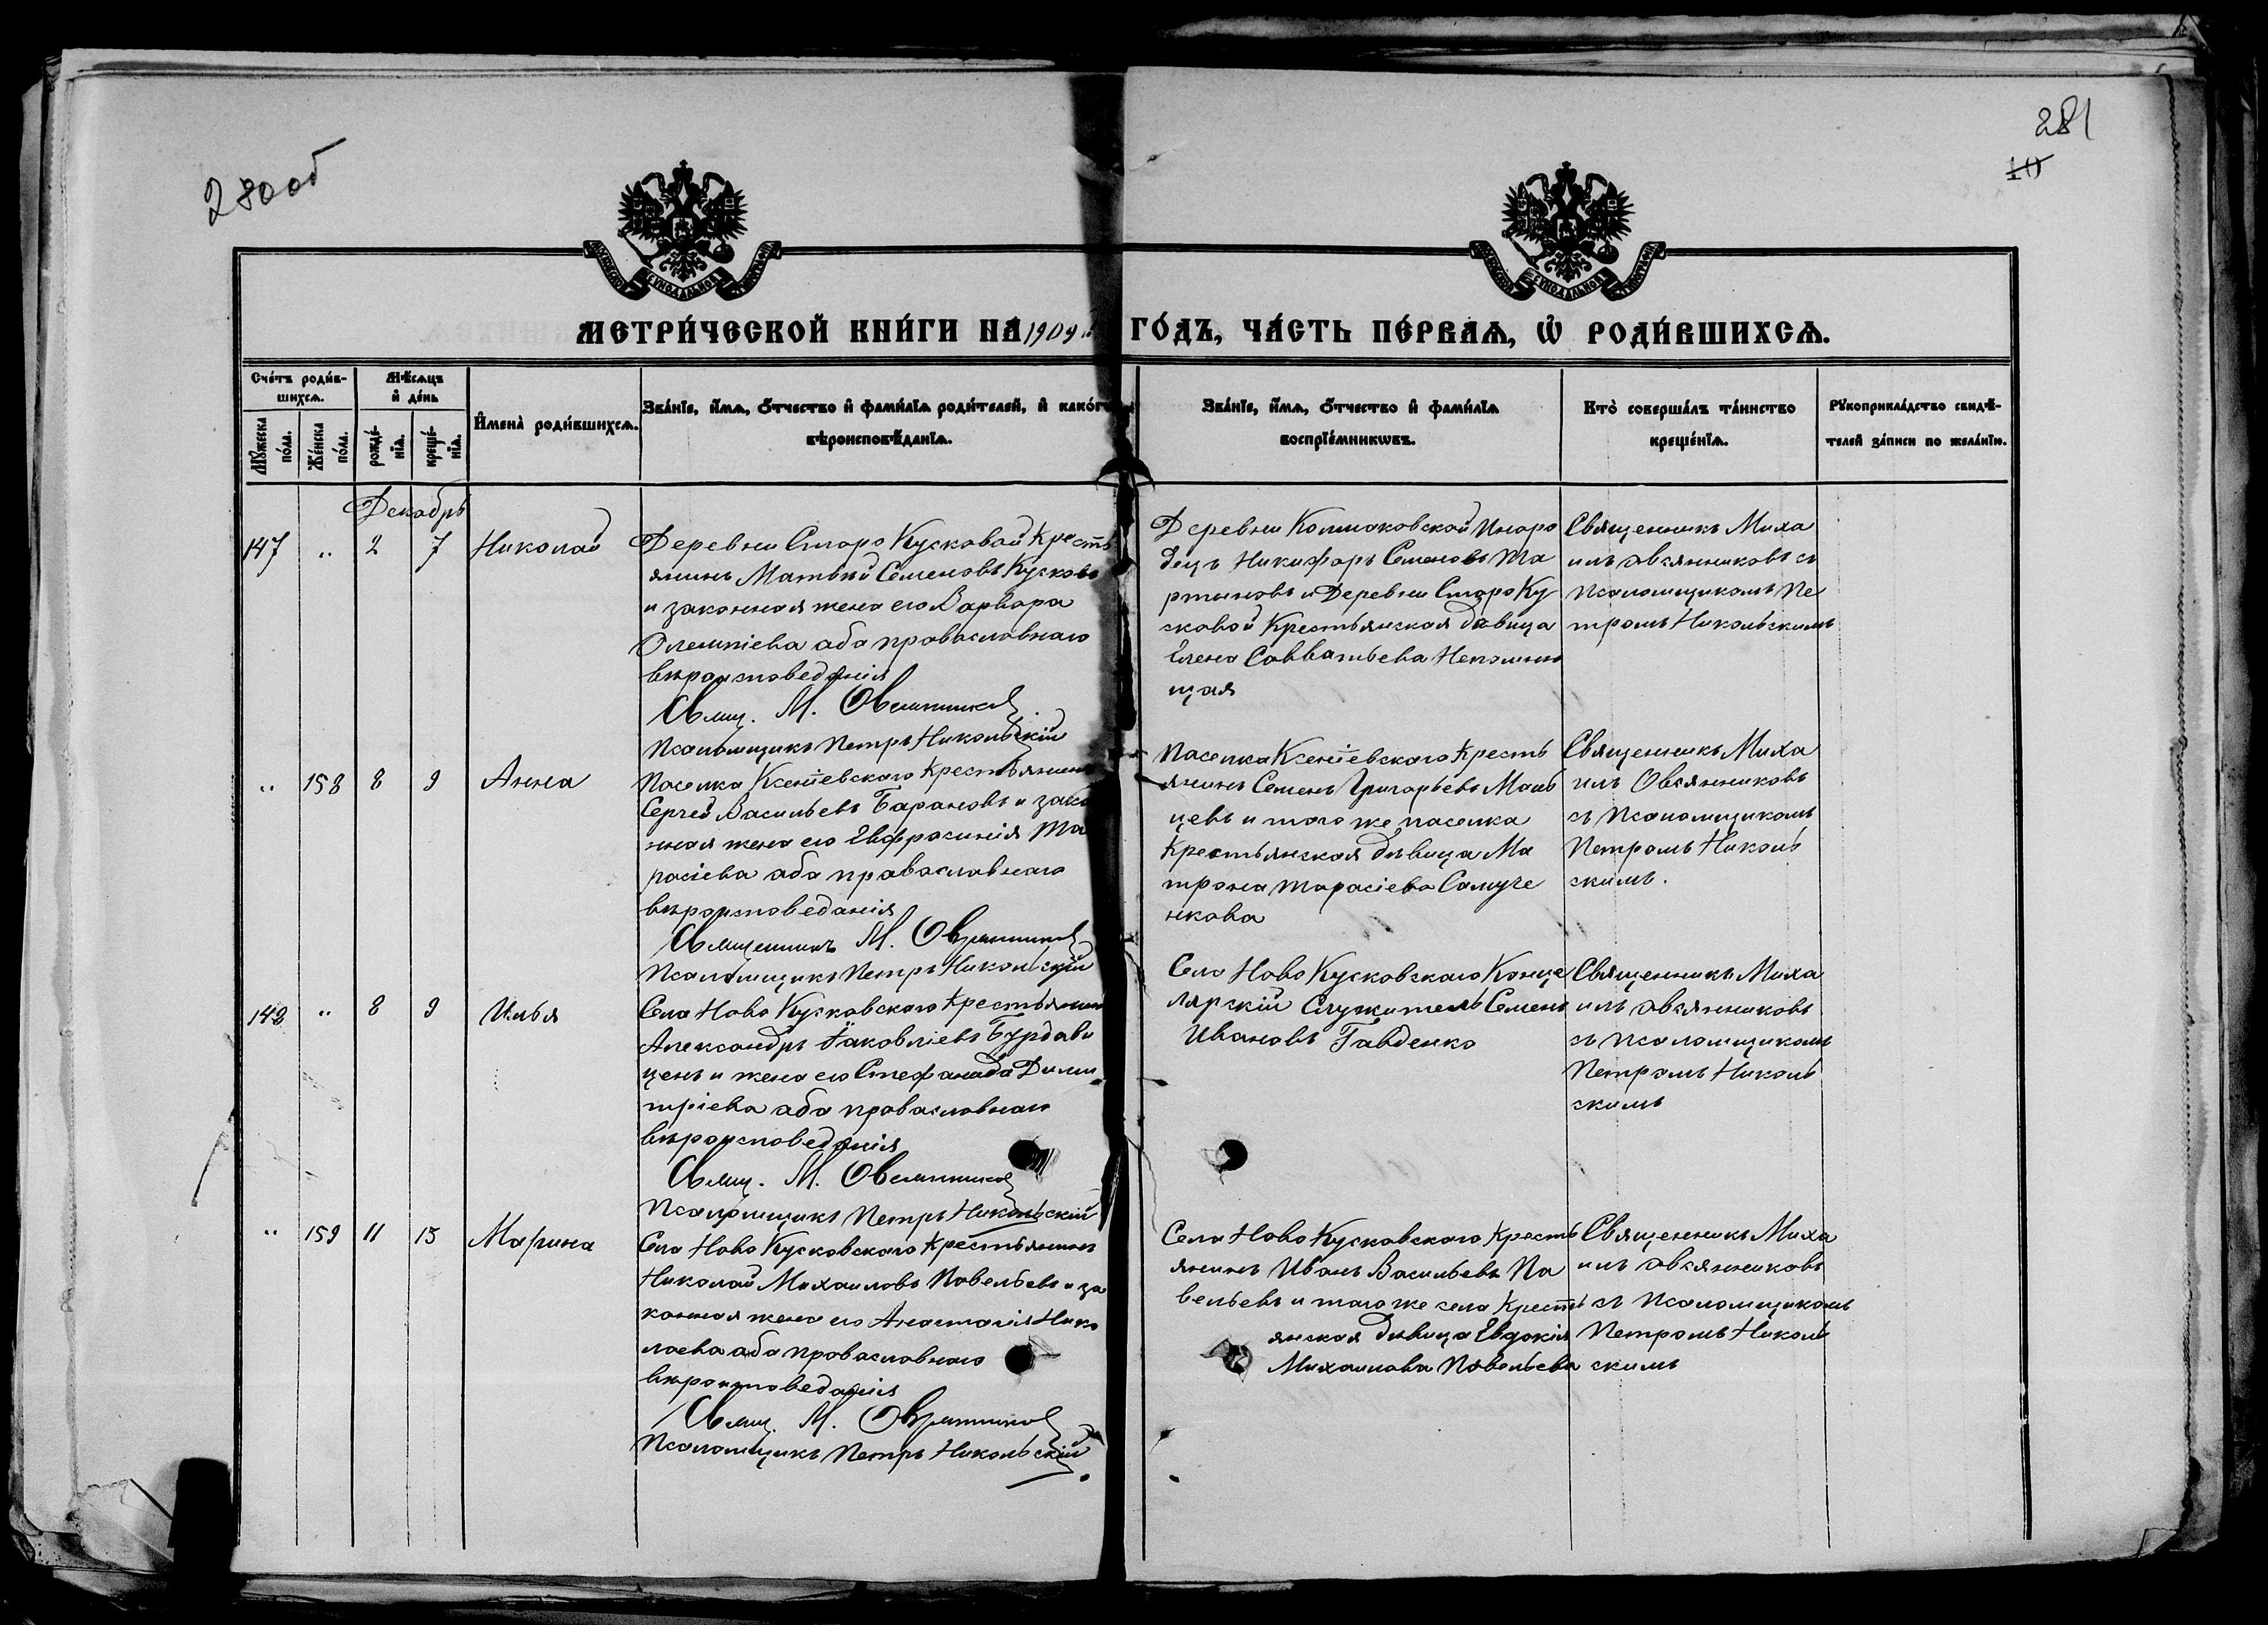 280 об
281
10
МОСКОВСКОЙ СѴНОДАЛЬНОЙ ТИПОГРАФІИ
МОСКОВСКОЙ СѴНОДАЛЬНОЙ ТИПОГРАФІИ
МЕТРИ́ЧЕСКОЙ КНИ́ГИ НА 1909 ГО́ДЪ, ЧА́СТЬ ПЕ́РВАѦ, Ѽ РОДИ́ВШИХСѦ.
Сче́тъ роди́в-
шихсѧ.
Мꙋ́жеска по́ла.
Же́нска по́ла.
Мѣ́сѧцъ
и҆ де́нь
рожде́-
нїѧ.
креще́-
нїѧ.
И҆мена̀ роди́вшихсѧ.
Зва́нїе, и҆́мѧ, ѻ҆́тчество и҆ фами́лїѧ роди́телей, и҆ како́гѡ
вѣроисповѣ́данїѧ.
Зва́нїе, и҆́мѧ, ѻ҆́тчество и҆ фами́лїѧ
воспрїе́мникѡвъ.
Кто̀ соверша́лъ та́инство
креще́нїѧ.
Рꙋкоприкла́дство свидѣ́-
телей за́писи по жела́нїю.
Декабрь
147 " 2 7 Николай
Деревни Старо Кусковой Кресть
янинъ Матвѣй Семеновъ Кусковъ
и законная жена его Варвара
Олемпіева оба православнаго
вѣроисповеданія
Свящ. М. Овсянниковъ
Псаломщикъ Петръ Никольскій
Деревни Колмаковской Иноро
децъ Никифоръ Семеновъ Ма
ртыновъ и Деревни Старо Ку
сковой Крестьянская дѣвица
Елена Савватьева Непомню
щая
Священникъ Миха
илъ Овсянниковъ съ
Псаломщикомъ Пе
тромъ Никольскимъ
" 158 8 9 Анна
Поселка Ксеніевскаго Крестьянинъ
Сергей Васильевъ Барановъ и зако
нная жена его Евфросинія Та
расіева оба православнаго
вѣроисповеданія
Священникъ М. Овсянниковъ
Псаломщикъ Петръ Никольскій
Поселка Ксеніевскаго Кресть
янинъ Семенъ Григорьевъ Маль
цевъ и того же поселка
Крестьянская дѣвица Ма
трона Тарасіева Самуче
нкова
Священникъ Миха
илъ Овсянниковъ
съ Псаломщикомъ
Петромъ Николь
скимъ.
148 " 8 9 Илья
Села Ново Кусковскаго Крестьянинъ
Александръ Іаковліевъ Бурдави
ценъ и жена его Стефанида Дими
тріева оба православнаго
вѣроисповеданія
Свящ. М. Овсянниковъ
Псаломщикъ Петръ Никольскій
Села Ново Кусковскаго Канце
лярскій Служитель Семенъ
Ивановъ Гавденко
Священникъ Миха
илъ Овсянниковъ
съ Псаломщикомъ
Петромъ Николь
скимъ
" 159 11 13 Марина
Села Ново Кусковскаго Крестьянинъ
Николай Михаиловъ Павельевъ и за
конная жена его Анастасія Нико
лаева оба православнаго
вѣроисповеданія
Свящ. М. Овсянниковъ
Псаломщикъ Петръ Никольскій
Села Ново Кусковскаго Кресть
янинъ Иванъ Васильевъ Па
вельевъ и того же села Кресть
янская дѣвица Евдокія
Михаилова Павельева
Священникъ Миха
илъ Овсянниковъ
съ Псаломщикомъ
Петромъ Николь
скимъ